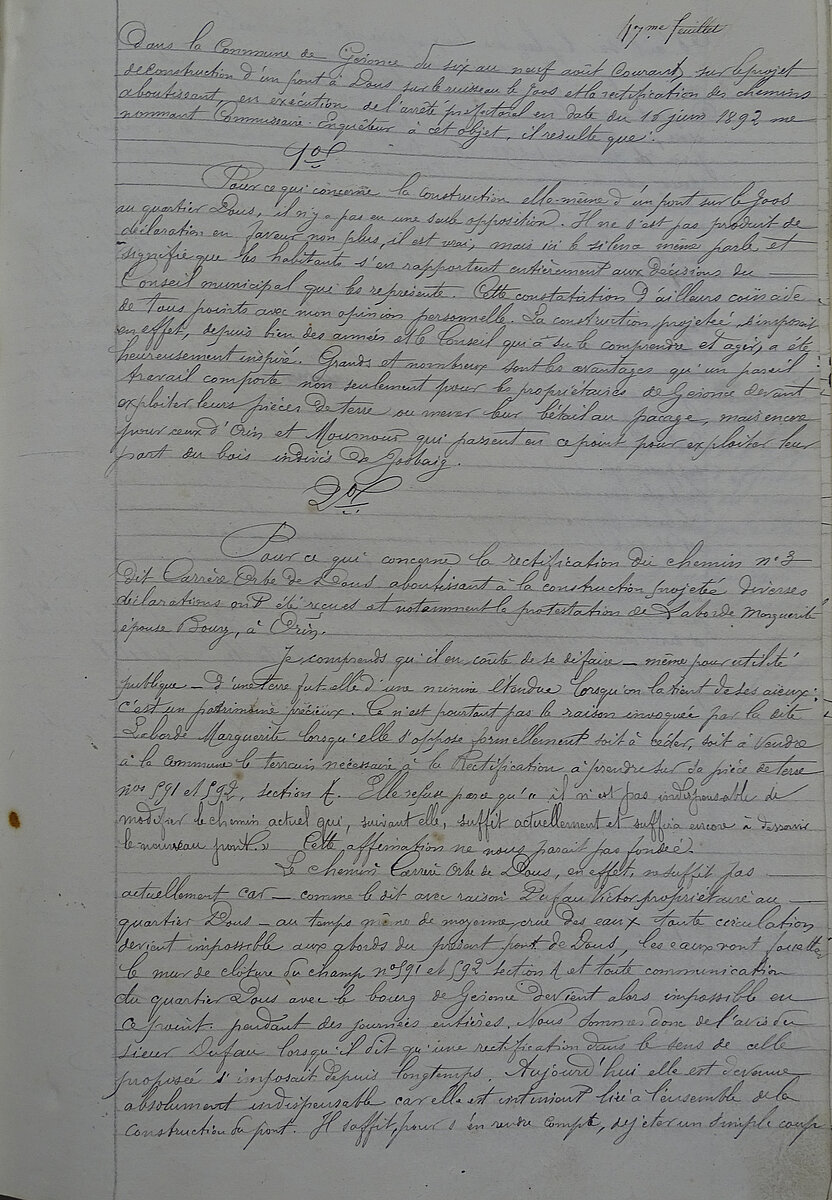 feuillet
Dans la Commune de Géronce du six au neuf août Courant, sur le projet
de construction d'un pont à Dous sur le ruisseau le Joos et la rectification des chemins
aboutissant, en exécution de l'arrêté préfectoral en date du juin 1892 me
nommant Commissaire Enquêteur à cet objet, il résulte que :
1o/
Pour ce qui concerne la construction elle-même d'un pont sur le Joos
au quartier Dous, il n'y a pas eu une seule opposition. Il ne s'est pas produit de
déclaration en faveur non plus, il est vrai, mais ici le silence même parle et
signifie que les habitants s'en rapportent entièrement aux décisions du
Conseil municipal qui les représente. Cette constatation d'ailleurs coïncide
de tous points avec mon opinion personnelle. La construction projetée s'imposait
en effet, depuis bien des années et le Conseil qui a su le comprendre et agir, a été
heureusement inspiré. Grands et nombreux sont les avantages qu'un pareil
travail comporte non seulement pour les propriétaires de Géronce devant
exploiter leurs pièces de terre ou mener leur bétail au pacage, mais encore
pour ceux d'Orin et Moumour qui passent en ce point pour exploiter leur
part du bois indivis de Josbaig.
2o/
Pour ce qui concerne la rectification du chemin no 3
dit Carrère Orbe de Dous aboutissant à la construction projetée diverses
déclarations ont été reçues et notamment la protestation de Laborde Marguerite
épouse Bourg, à Orin.
Je comprends qu'il en coûte de se défaire _ même pour utilité
publique _ d'une terre fut-elle d'une minime étendue lorsqu'on la tient de ses aïeux :
c'est un patrimoine précieux. Ce n'est pourtant pas la raison invoquée par la dite
Laborde Marguerite lorsqu'elle s'oppose formellement soit à céder, soit à vendre
à la commune le terrain nécessaire à la Rectification à prendre sur sa pièce de terre
nos 591 et 592, section A. Elle refuse parce qu'« il n'est pas indispensable de
modifier le chemin actuel qui, suivant elle, suffit actuellement et suffira encore à desservir
le nouveau pont. » Cette affirmation ne nous parait pas fondée.
Le chemin Carrère Orbe de Dous, en effet, ne suffit pas
actuellement car _ comme le dit avec raison Dufau Victor propriétaire au
quartier Dous _ au temps même de moyenne crue des eaux toute circulation
devient impossible aux abords du présent pont de Dous, les eaux vont fouetter
le mur de clôture du champ nos 591 et 592 section A et toute communication
du quartier Dous avec le bourg de Géronce devient alors impossible en
ce point pendant des journées entières. Nous sommes donc de l'avis du
sieur Dufau lorsqu'il dit qu'une rectification dans le sens de celle
proposée s'imposait depuis longtemps. Aujourd'hui elle est devenue
absolument indispensable car elle est intimement liée à l'ensemble de la
construction du pont. Il suffit, pour s'en rendre compte, de jeter un simple coup